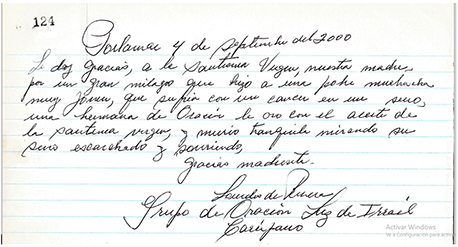 124
Porlamar 4 de septiembre del 2000
Le doy gracias, a la santisima Virgen, nuestra madre
por un gran milagro que hizo a una pobre muchacha
muy joven, que sufria con un cancer en un seno,
una hermana de Oración le oro con el aceite de
la santisima virgen, y murio tranquila mirando su
seno escarchado y sonriendo,
Gracias madrecita.
Lourdes de
Grupo de Oración Luz de Israél
Carúpano
Activar Windows
Ve a Configuración para activ